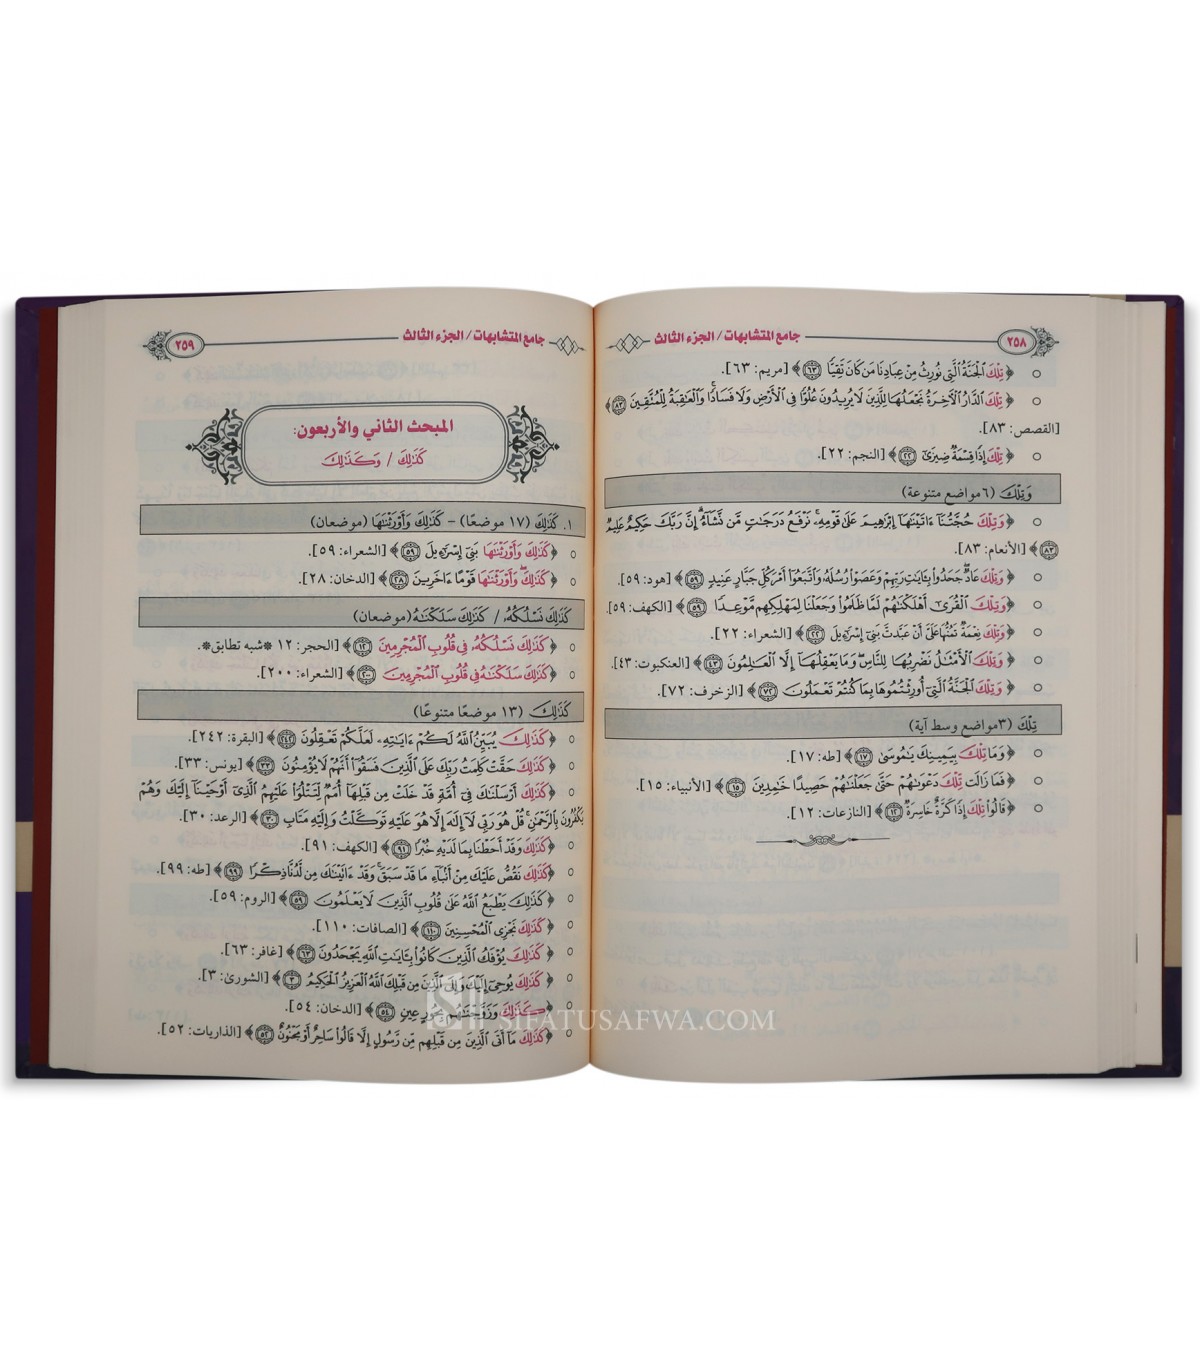 ٢٥٨
جامع المتشابهات/ الجزء الثالث
﴿تِلْكَ الْجَنَّةُ الَّتِي نُورِثُ مِنْ عِبَادِنَا مَن كَانَ تَقِيًّا ٦٣﴾ [مريم: ٦٣].
﴿تِلْكَ الدَّارُ الْآخِرَةُ نَجْعَلُهَا لِلَّذِينَ لَا يُرِيدُونَ عُلُوًّا فِي الْأَرْضِ وَلَا فَسَادًا وَالْعَاقِبَةُ لِلْمُتَّقِينَ ٨٣﴾
[القصص: ٨٣].
﴿تِلْكَ إِذًا قِسْمَةٌ ضِيزَىٰ ٢٢﴾ [النجم: ٢٢].
وَتِلْكَ (٦مواضع متنوعة)
﴿وَتِلْكَ حُجَّتُنَا ءَاتَيْنَٰهَا إِبْرَٰهِيمَ عَلَىٰ قَوْمِهِۦ نَرْفَعُ دَرَجَٰتٍ مَّن نَّشَآءُ إِنَّ رَبَّكَ حَكِيمٌ عَلِيمٌ
٨٣﴾ [الأنعام: ٨٣].
﴿وَتِلْكَ عَادٌ جَحَدُوا۟ بِـَٔايَٰتِ رَبِّهِمْ وَعَصَوْا۟ رُسُلَهُۥ وَٱتَّبَعُوٓا۟ أَمْرَ كُلِّ جَبَّارٍ عَنِيدٍ ٥٩﴾ [هود: ٥٩].
﴿وَتِلْكَ ٱلْقُرَىٰٓ أَهْلَكْنَٰهُمْ لَمَّا ظَلَمُوا۟ وَجَعَلْنَا لِمَهْلِكِهِم مَّوْعِدًا ٥٩﴾ [الكهف: ٥٩].
﴿وَتِلْكَ نِعْمَةٌ تَمُنُّهَا عَلَىَّ أَنْ عَبَّدتَّ بَنِىٓ إِسْرَٰٓءِيلَ ٢٢﴾ [الشعراء: ٢٢].
﴿وَتِلْكَ ٱلْأَمْثَٰلُ نَضْرِبُهَا لِلنَّاسِ وَمَا يَعْقِلُهَآ إِلَّا ٱلْعَٰلِمُونَ ٤٣﴾ [العنكبوت: ٤٣].
﴿وَتِلْكَ ٱلْجَنَّةُ ٱلَّتِىٓ أُورِثْتُمُوهَا بِمَا كُنتُمْ تَعْمَلُونَ ٧٢﴾ [الزخرف: ٧٢].
تِلْكَ (٣مواضع وسط آية)
﴿وَمَا تِلْكَ بِيَمِينِكَ يَٰمُوسَىٰ ١٧﴾ [طه: ١٧].
﴿فَمَا زَالَت تِّلْكَ دَعْوَىٰهُمْ حَتَّىٰ جَعَلْنَٰهُمْ حَصِيدًا خَٰمِدِينَ ١٥﴾ [الأنبياء: ١٥].
﴿قَالُوا۟ تِلْكَ إِذًا كَرَّةٌ خَاسِرَةٌ ١٢﴾ [النازعات: ١٢].
جامع المتشابهات/ الجزء الثالث
٢٥٩
المبحث الثاني والأربعون:
كَذَٰلِكَ / وَكَذَٰلِكَ
١. كَذَٰلِكَ (١٧ موضعًا) – كَذَٰلِكَ وَأَوْرَثْنَٰهَا (موضعان)
﴿كَذَٰلِكَ وَأَوْرَثْنَٰهَا بَنِىٓ إِسْرَٰٓءِيلَ ٥٩﴾ [الشعراء: ٥٩].
﴿كَذَٰلِكَ وَأَوْرَثْنَٰهَا قَوْمًا ءَاخَرِينَ ٢٨﴾ [الدخان: ٢٨].
كَذَٰلِكَ نَسْلُكُهُۥ / كَذَٰلِكَ سَلَكْنَٰهُ (موضعان)
﴿كَذَٰلِكَ نَسْلُكُهُۥ فِى قُلُوبِ ٱلْمُجْرِمِينَ ١٢﴾ [الحجر: ١٢ *شبه تطابق*.
﴿كَذَٰلِكَ سَلَكْنَٰهُ فِى قُلُوبِ ٱلْمُجْرِمِينَ ٢٠٠﴾ [الشعراء: ٢٠٠].
كَذَٰلِكَ (١٣ موضعًا متنوعًا)
﴿كَذَٰلِكَ يُبَيِّنُ ٱللَّهُ لَكُمْ ءَايَٰتِهِۦ لَعَلَّكُمْ تَعْقِلُونَ ٢٤٢﴾ [البقرة: ٢٤٢].
﴿كَذَٰلِكَ حَقَّتْ كَلِمَتُ رَبِّكَ عَلَى ٱلَّذِينَ فَسَقُوٓا۟ أَنَّهُمْ لَا يُؤْمِنُونَ ٣٣﴾ [يونس: ٣٣].
﴿كَذَٰلِكَ أَرْسَلْنَٰكَ فِىٓ أُمَّةٍ قَدْ خَلَتْ مِن قَبْلِهَآ أُمَمٌ لِّتَتْلُوَا۟ عَلَيْهِمُ ٱلَّذِىٓ أَوْحَيْنَآ إِلَيْكَ وَهُمْ
يَكْفُرُونَ بِٱلرَّحْمَٰنِ قُلْ هُوَ رَبِّى لَآ إِلَٰهَ إِلَّا هُوَ عَلَيْهِ تَوَكَّلْتُ وَإِلَيْهِ مَتَابِ ٣٠﴾ [الرعد: ٣٠].
﴿كَذَٰلِكَ وَقَدْ أَحَطْنَا بِمَا لَدَيْهِ خُبْرًا ٩١﴾ [الكهف: ٩١].
﴿كَذَٰلِكَ نَقُصُّ عَلَيْكَ مِنْ أَنۢبَآءِ مَا قَدْ سَبَقَ وَقَدْ ءَاتَيْنَٰكَ مِن لَّدُنَّا ذِكْرًا ٩٩﴾ [طه: ٩٩].
﴿كَذَٰلِكَ يَطْبَعُ ٱللَّهُ عَلَىٰ قُلُوبِ ٱلَّذِينَ لَا يَعْلَمُونَ ٥٩﴾ [الروم: ٥٩].
﴿كَذَٰلِكَ نَجْزِى ٱلْمُحْسِنِينَ ١١٠﴾ [الصافات: ١١٠].
﴿كَذَٰلِكَ يُؤْفَكُ ٱلَّذِينَ كَانُوا۟ بِـَٔايَٰتِ ٱللَّهِ يَجْحَدُونَ ٦٣﴾ [غافر: ٦٣].
﴿كَذَٰلِكَ يُوحِىٓ إِلَيْكَ وَإِلَى ٱلَّذِينَ مِن قَبْلِكَ ٱللَّهُ ٱلْعَزِيزُ ٱلْحَكِيمُ ٣﴾ [الشورى: ٣].
﴿كَذَٰلِكَ وَزَوَّجْنَٰهُم بِحُورٍ عِينٍ ٥٤﴾ [الدخان: ٥٤].
﴿كَذَٰلِكَ مَآ أَتَى ٱلَّذِينَ مِن قَبْلِهِم مِّن رَّسُولٍ إِلَّا قَالُوا۟ سَاحِرٌ أَوْ مَجْنُونٌ ٥٢﴾ [الذاريات: ٥٢].
SIFATUSAFWA.COM